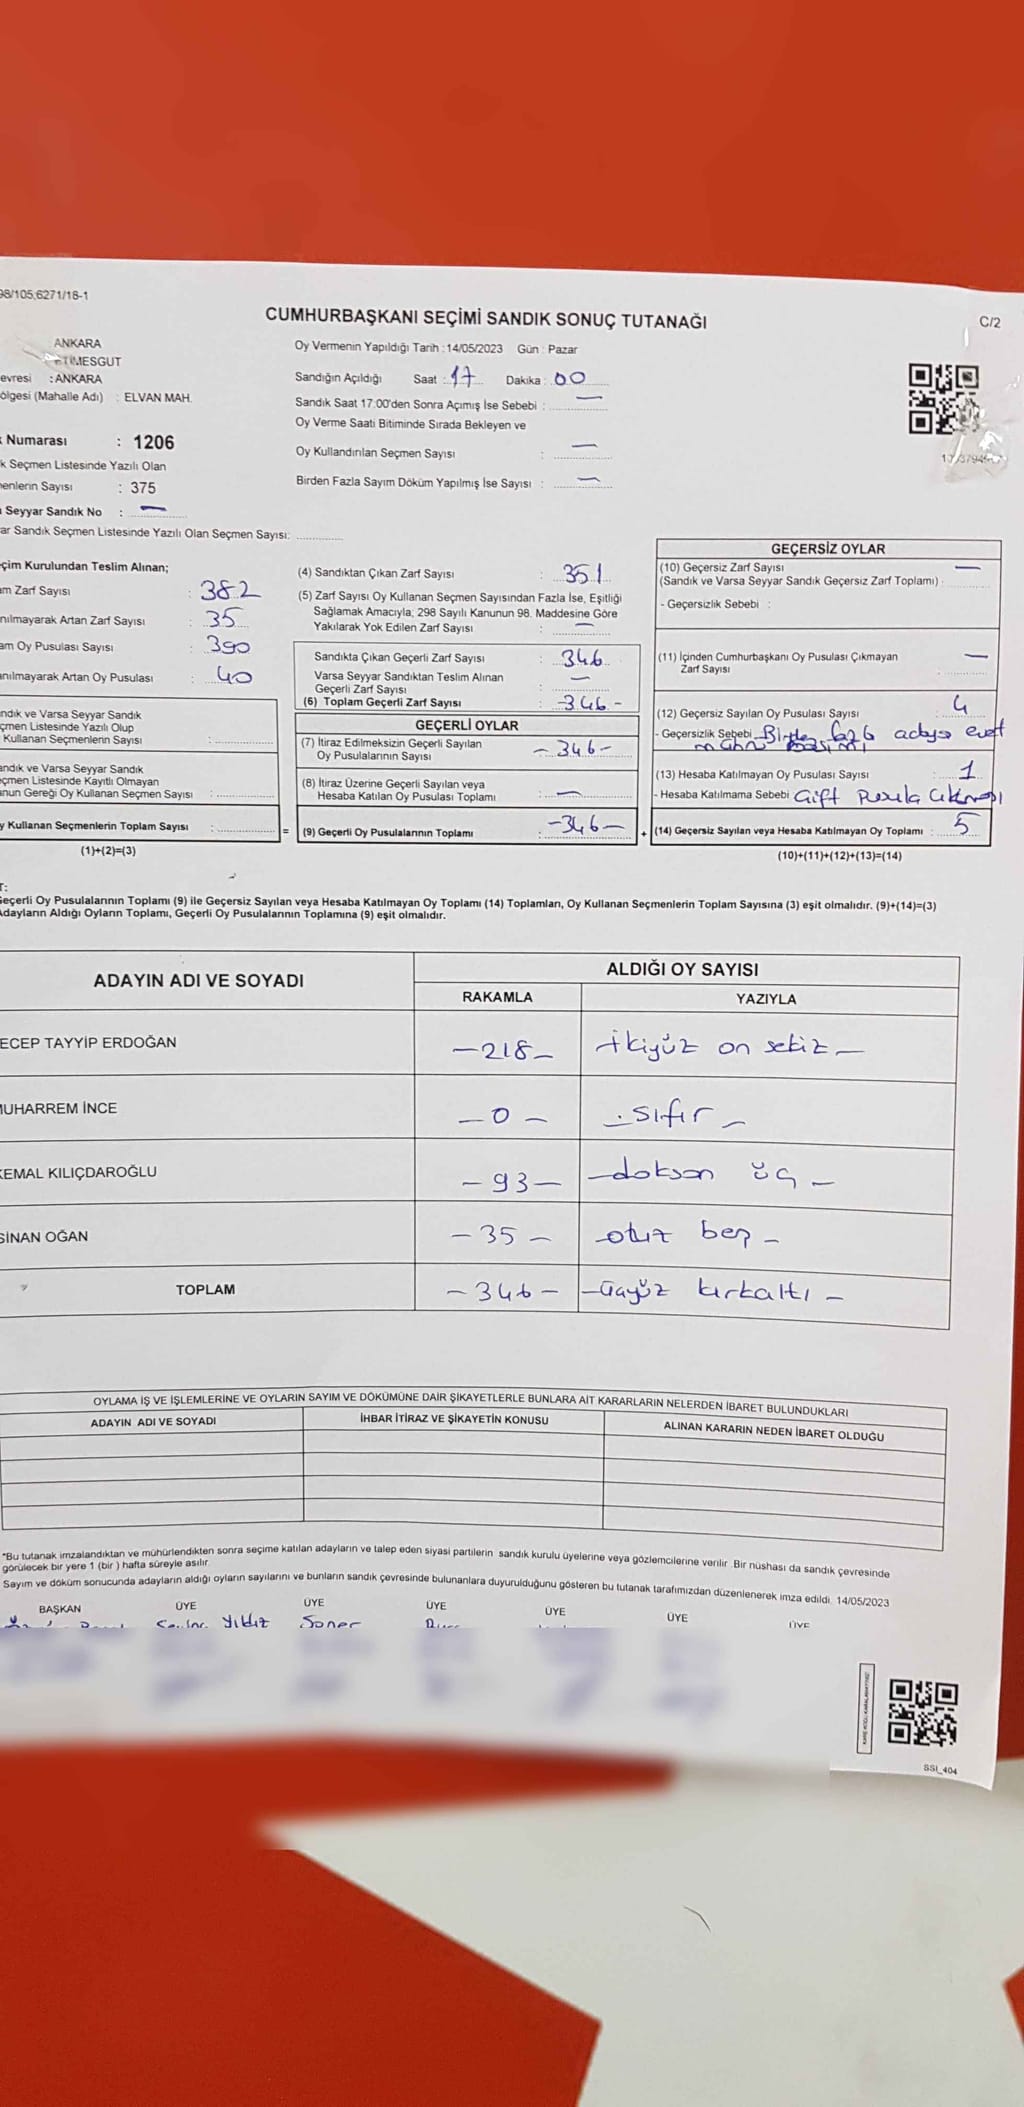 98/105,6271/18-1
CUMHURBAŞKANI SEÇİMİ SANDIK SONUÇ TUTANAĞI
C/2
ANKARA
ETİMESGUT
evresi : ANKARA
ölgesi (Mahalle Adı) : ELVAN MAH.
Numarası : 1206
k Seçmen Listesinde Yazılı Olan
menlerin Sayısı : 375
Seyyar Sandık No : —
ar Sandık Seçmen Listesinde Yazılı Olan Seçmen Sayısı:
Oy Vermenin Yapıldığı Tarih : 14/05/2023 Gün : Pazar
Sandığın Açıldığı Saat : 17 Dakika : 00
Sandık Saat 17:00'den Sonra Açımış İse Sebebi : —
Oy Verme Saati Bitiminde Sırada Bekleyen ve
Oy Kullandırılan Seçmen Sayısı : —
Birden Fazla Sayım Döküm Yapılmış İse Sayısı : —
çim Kurulundan Teslim Alınan;
am Zarf Sayısı : 382
nılmayarak Artan Zarf Sayısı : 35
am Oy Pusulası Sayısı : 390
anılmayarak Artan Oy Pusulası : 40
ndık ve Varsa Seyyar Sandık
çmen Listesinde Yazılı Olup
Kullanan Seçmenlerin Sayısı :
andık ve Varsa Seyyar Sandık
çmen Listesinde Kayıtlı Olmayan
anun Gereği Oy Kullanan Seçmen Sayısı :
y Kullanan Seçmenlerin Toplam Sayısı : =
(1)+(2)=(3)
(4) Sandıktan Çıkan Zarf Sayısı : 351
(5) Zarf Sayısı Oy Kullanan Seçmen Sayısından Fazla İse, Eşitliği
Sağlamak Amacıyla, 298 Sayılı Kanunun 98. Maddesine Göre
Yakılarak Yok Edilen Zarf Sayısı : —
Sandıkta Çıkan Geçerli Zarf Sayısı : 346
Varsa Seyyar Sandıktan Teslim Alınan
Geçerli Zarf Sayısı : —
(6) Toplam Geçerli Zarf Sayısı : -346-
GEÇERLİ OYLAR
(7) İtiraz Edilmeksizin Geçerli Sayılan
Oy Pusulalarının Sayısı : -346-
(8) İtiraz Üzerine Geçerli Sayılan veya
Hesaba Katılan Oy Pusulası Toplamı : —
(9) Geçerli Oy Pusulalarının Toplamı : -346- +
GEÇERSİZ OYLAR
(10) Geçersiz Zarf Sayısı —
(Sandık ve Varsa Seyyar Sandık Geçersiz Zarf Toplamı) :
- Geçersizlik Sebebi :
(11) İçinden Cumhurbaşkanı Oy Pusulası Çıkmayan
Zarf Sayısı : —
(12) Geçersiz Sayılan Oy Pusulası Sayısı : 4
- Geçersizlik Sebebi evet
(13) Hesaba Katılmayan Oy Pusulası Sayısı : 1
- Hesaba Katılmama Sebebi Çift Pusula Çıkması
(14) Geçersiz Sayılan veya Hesaba Katılmayan Oy Toplamı : 5
(10)+(11)+(12)+(13)=(14)
T:
Geçerli Oy Pusulalarının Toplamı (9) ile Geçersiz Sayılan veya Hesaba Katılmayan Oy Toplamı (14) Toplamları, Oy Kullanan Seçmenlerin Toplam Sayısına (3) eşit olmalıdır. (9)+(14)=(3)
Adayların Aldığı Oyların Toplamı, Geçerli Oy Pusulalarının Toplamına (9) eşit olmalıdır.
ADAYIN ADI VE SOYADI
ALDIĞI OY SAYISI
RAKAMLA YAZIYLA
ECEP TAYYİP ERDOĞAN -218- ikiyüz on sekiz-
MUHARREM İNCE -0- -sıfır-
KEMAL KILIÇDAROĞLU -93- -doksan üç-
SİNAN OĞAN -35- otuz beş-
TOPLAM -346- -üçyüz kırkaltı-
OYLAMA İŞ VE İŞLEMLERİNE VE OYLARIN SAYIM VE DÖKÜMÜNE DAİR ŞİKAYETLERLE BUNLARA AİT KARARLARIN NELERDEN İBARET BULUNDUKLARI
ADAYIN ADI VE SOYADI İHBAR İTİRAZ VE ŞİKAYETİN KONUSU ALINAN KARARIN NEDEN İBARET OLDUĞU
*Bu tutanak imzalandıktan ve mühürlendikten sonra seçime katılan adayların ve talep eden siyasi partilerin sandık kurulu üyelerine veya gözlemcilerine verilir. Bir nüshası da sandık çevresinde
görülecek bir yere 1 (bir ) hafta süreyle asılır.
Sayım ve döküm sonucunda adayların aldığı oyların sayılarını ve bunların sandık çevresinde bulunanlara duyurulduğunu gösteren bu tutanak tarafımızdan düzenlenerek imza edildi. 14/05/2023
BAŞKAN ÜYE ÜYE ÜYE ÜYE ÜYE ÜYE
Yıldız Soner
SSI_404